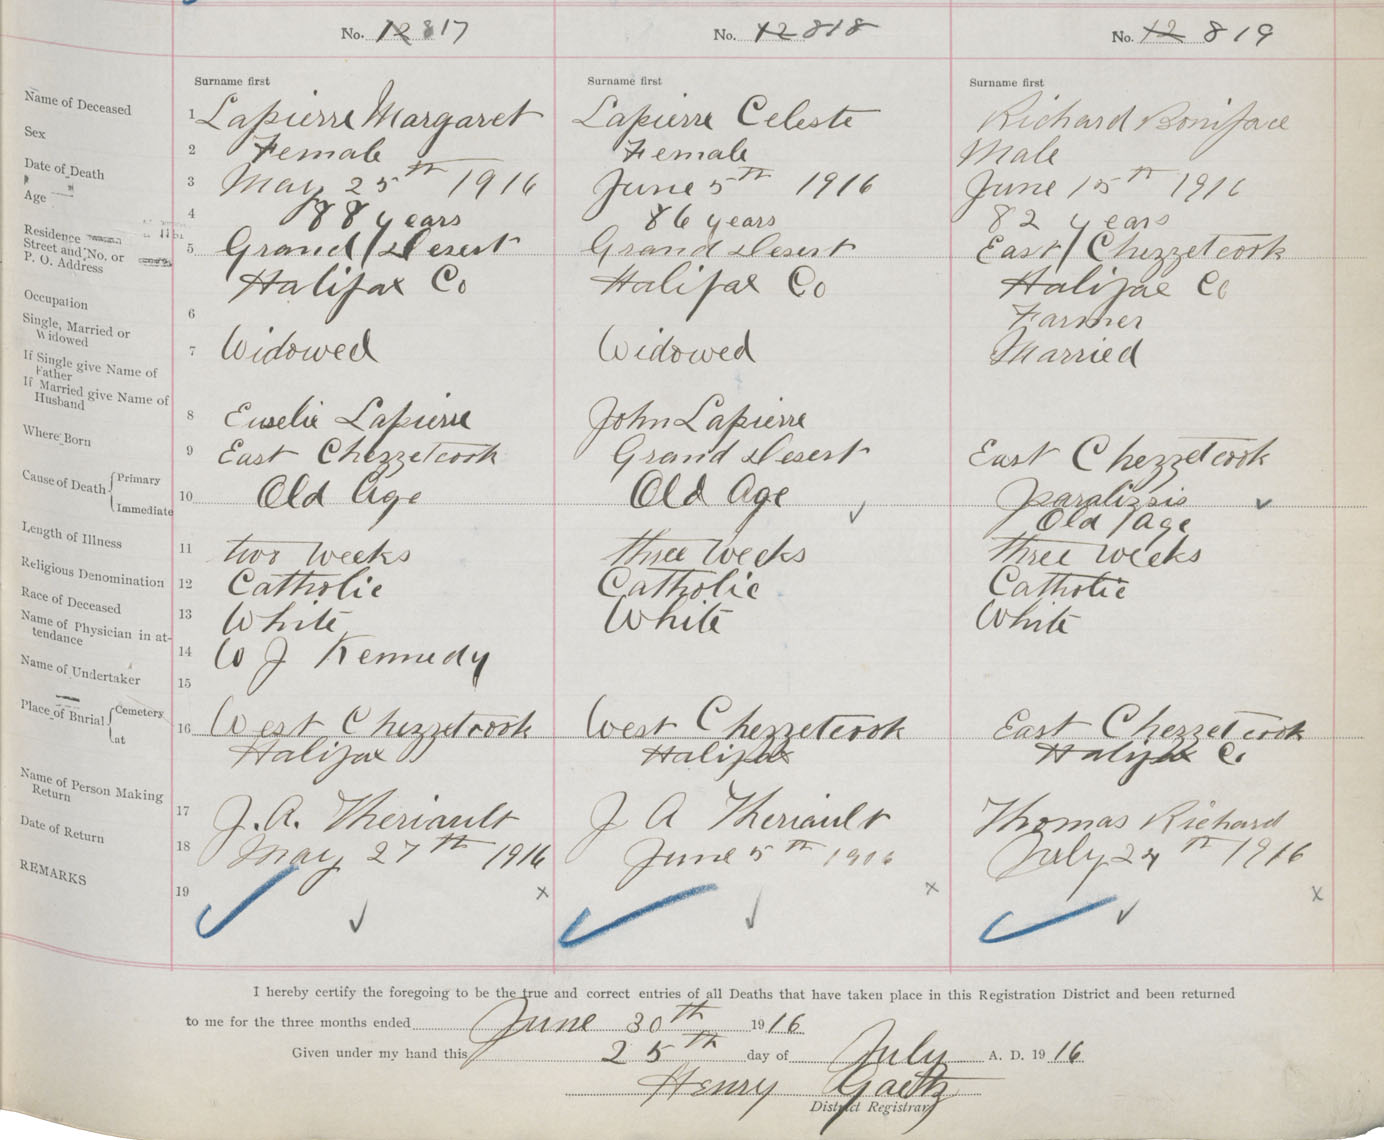 No. 12 817
No. 12 818
No. 12 819
Surname first
Surname first
Surname first
Name of Deceased
1 Lapierre Margaret
Lapierre Celeste
Richard Boniface
Sex
2 Female
Female
Male
Date of Death
3 May 25th 1916
June 5th 1916
June 15th 1916
Age
4 88 years
86 years
82 years
Residence
Street and No. or
P. O. Address
5 Grand Desert
Halifax Co
Grand Desert
Halifax Co
East Chezzetcook
Halifax Co
Occupation
6
Farmer
Single, Married or
Widowed
7 Widowed
Widowed
Married
If Single give Name of
Father
If Married give Name of
Husband
8 Euselie Lapierre
John Lapierre
Where Born
9 East Chezzetcook
Grand Desert
East Chezzetcook
Cause of Death Primary
Immediate
10 Old Age
Old Age
paralizsis
Old Age
Length of Illness
11 two weeks
three weeks
three weeks
Religious Denomination
12 Catholic
Catholic
Catholic
Race of Deceased
13 White
White
White
Name of Physician in at-
tendance
14 W J Kennedy
Name of Undertaker
15
Place of Burial Cemetery
at
16 West Chezzetcook
Halifax
West Chezzetcook
Halifax
East Chezzetcook
Halifax Co
Name of Person Making
Return
17 J. A. Theriault
J A Theriault
Thomas Richard
Date of Return
18 May 27th 1916
June 5th 1916
July 24th 1916
REMARKS
19
x
x
x
I hereby certify the foregoing to be the true and correct entries of all Deaths that have taken place in this Registration District and been returned
to me for the three months ended June 30th 1916
Given under my hand this 25th day of July A. D. 1916
Henry Gaetz
District Registrar